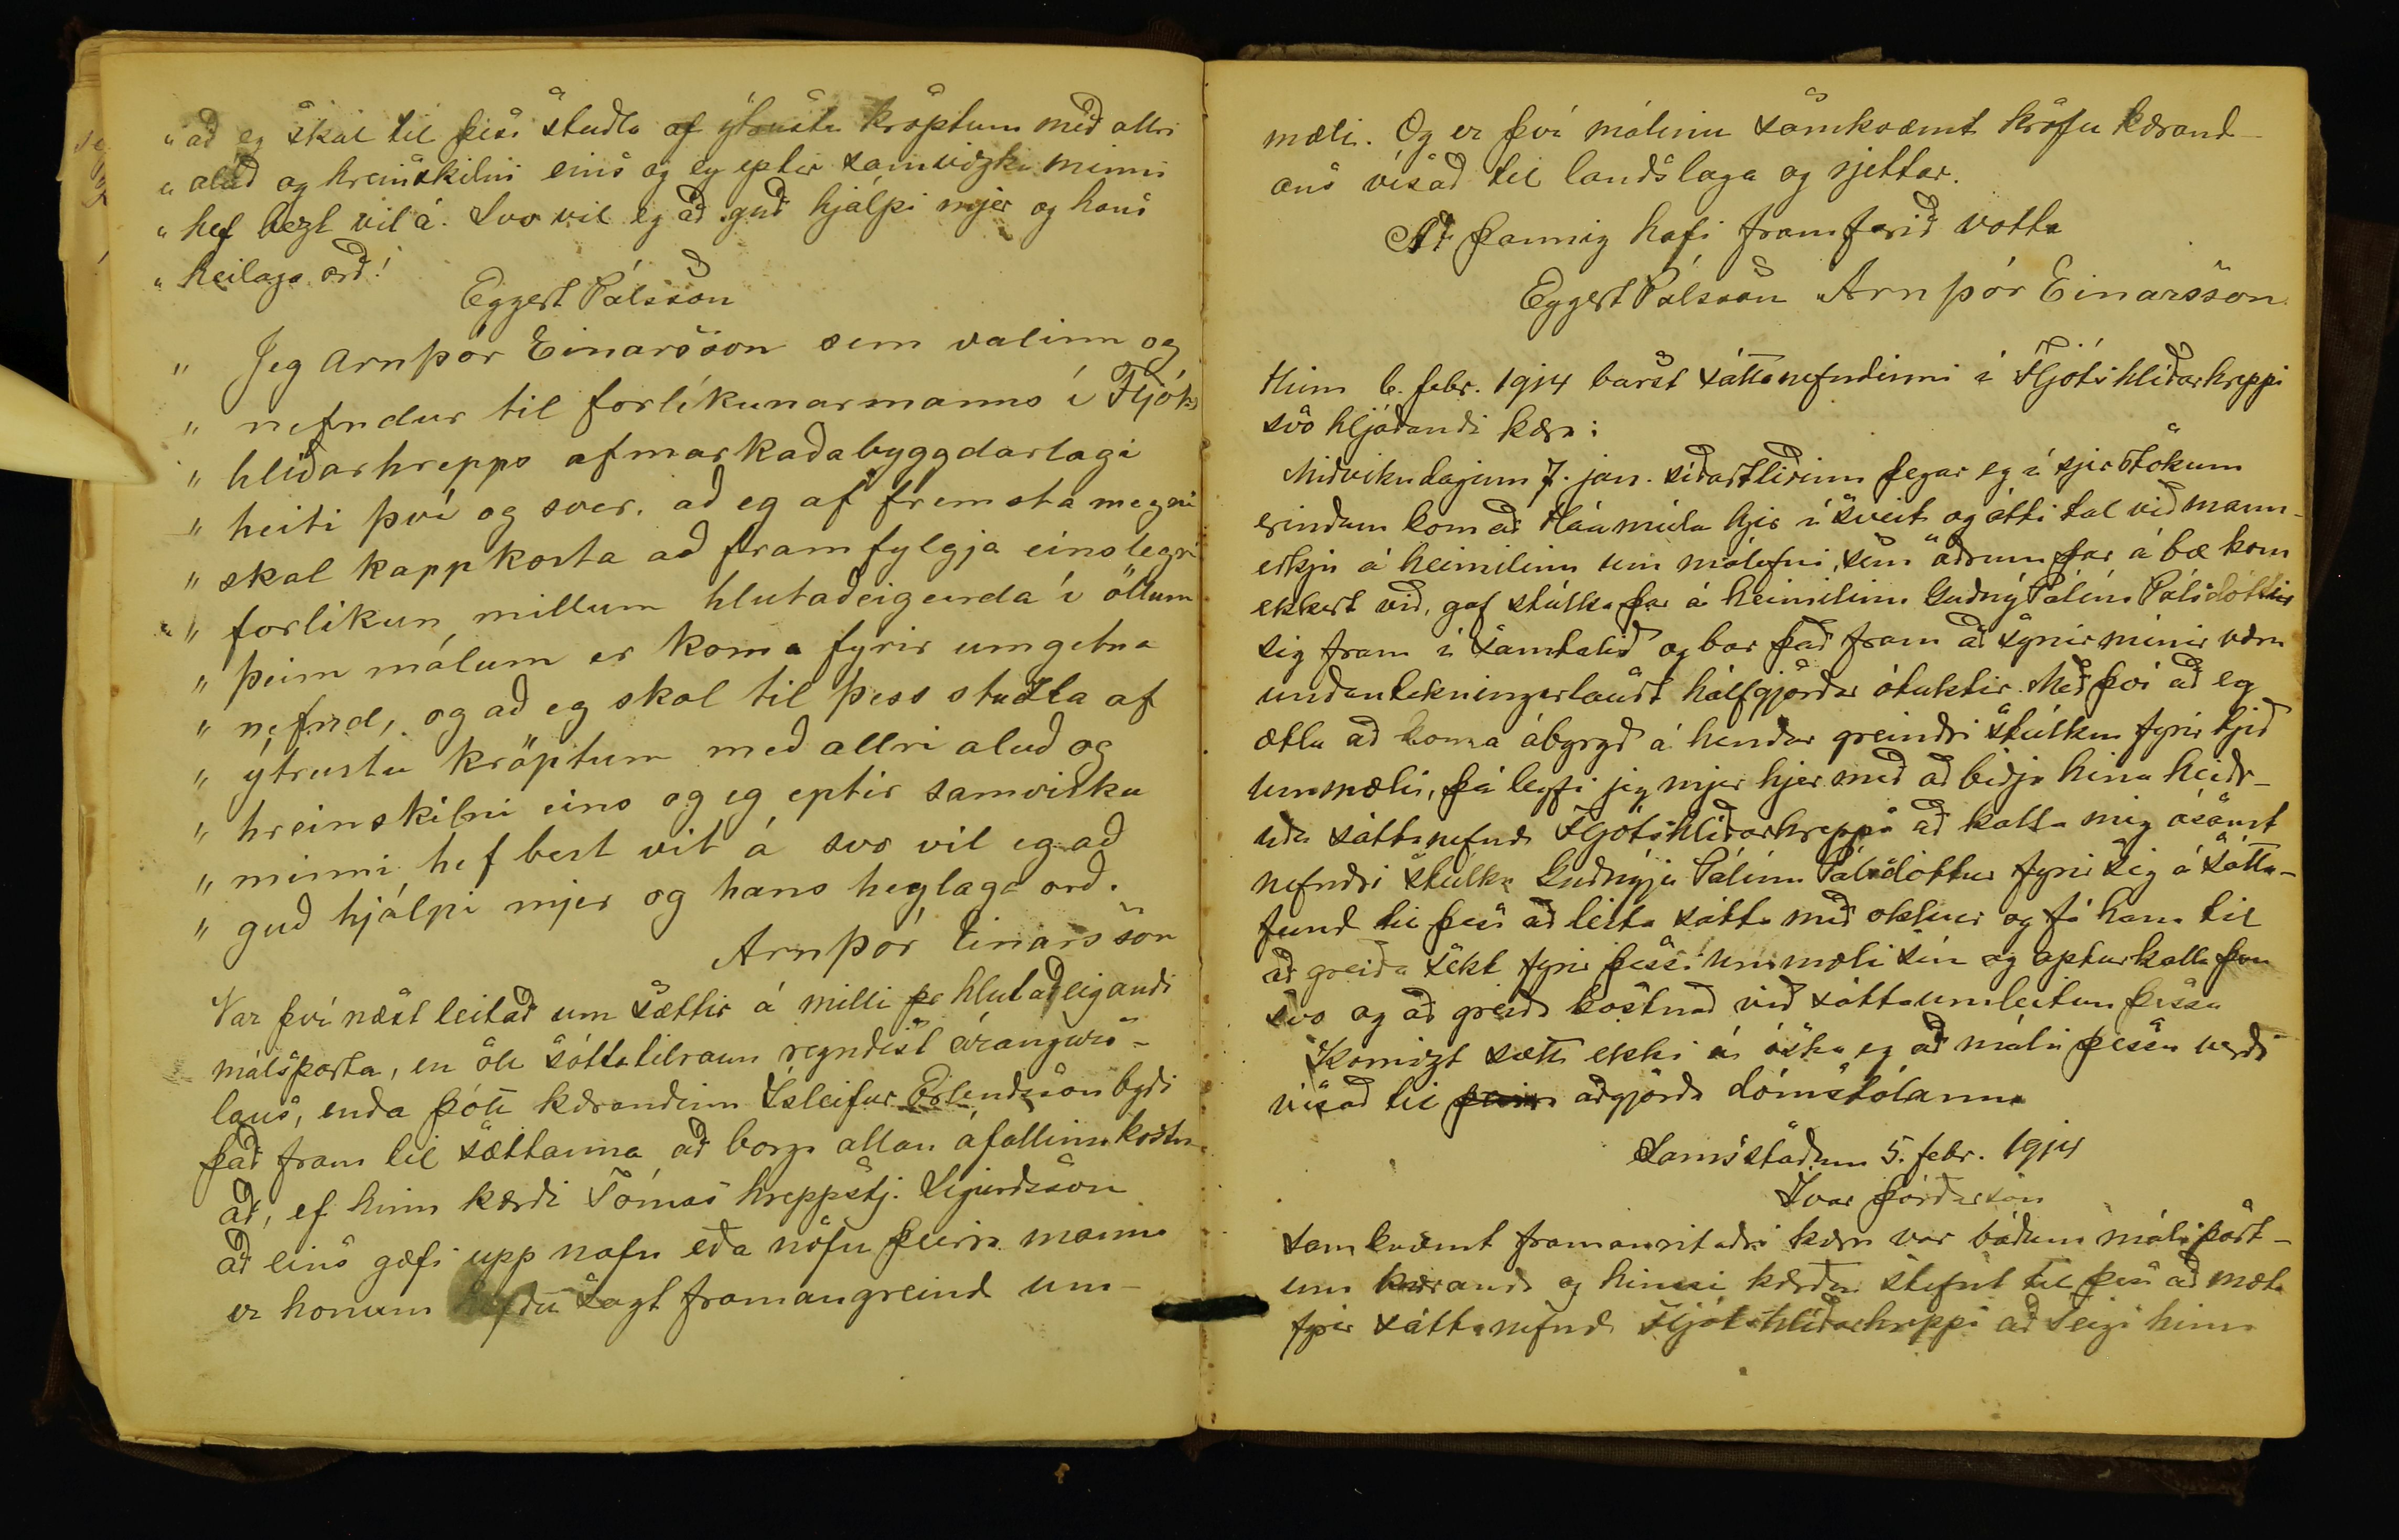 „ að eg skal til þess stuðla af ýtrustu kröptum með allri
„ alúð og hreinskilni eins og eg eptir samvizku minni
„ hef bezt vit á. Svo vil eg að guð hjálpi mjer og hans
„ heilaga orð!
Eggert Pálsson
„ Jeg Arnþór Einarsson sem valinn og
„ nefndur til forlíkunarmanns í Fljóts
„ hlíðarhrepps afmarkaðabyggdarlagi
„ heiti því og sver, að eg af fremsta megni
„ skal kappkosta að framfylgja einslegri
„ forlíkun millum hlutaðeigenda í öllum
„ þeim málum er koma fyrir umgetna
„ nefnd, og að eg skal til þess stuðla af
„ ýtrustu kröptum með allri aluð og
„ hreinskilni eins og eg eptir samvisku
„ minni hef best vit á svo vil eg að
„ guð hjálpi mjer og hans heylaga orð.
Arnþór Einarsson
Var því næst leitað um sættir á milli þe hlutaðeigandi
málsparta, en öll sáttatilraun reyndist árangurs-
laus, enda þótt kærandinn Ísleifur Erlendsson byði
það fram til sættanna að borga allan áfallinn kostn-
að, ef hinn kærði Tómas hreppstj. Sigurdsson
að eins gæfi upp nafn eða nöfn þeirra manna
er honum hefðu sagt framangreind um-
mæli. Og er því málinu samkvæmt kröfu kærand-
ans vísað til landslaga og rjettar.
Að þannig hafi framfarið votta
Eggert Pálsson Arnþór Einarsson
Hinn 6. febr. 1914 barst sáttanefndinni í Fljótshlíðarhreppi
svo hljóðandi kæra:
Miðvikudaginn 7. jan. síðastliðinn þegar eg í sjerstökum
erindum kom að Háamúla hjer í sveit og átti tal við mann-
eskju á heimilinu um málefni, sem öðrum þar á bæ kom
ekkert við, gaf stúlka þar á heimilinu Guðný Pálína Pálsdóttir
sig fram í samtalið og bar það fram að synir mínir væru
undantekningarlaust hálfgjörðar ótuktir. Með því að eg
ætla að koma ábyrgð á hendur greindri stúlku fyrir tjeð
ummæli, þá leyfi jeg mjer hjer með að biðja hina heiðr-
uðu sáttanefnd Fljótshlíðarhrepps að kalla mig ásamt
nefndri stúlku Guðnýju Pálínu Pálsdóttur fyrir sig á sátta-
fund til þess að leita sátta með okkur og fá hana til
að greiða sekt fyrir þessi ummæli sín og apturkalla þau
svo og að greiða kostnað við sáttaumleitun þessa
Komizt sætt ekki á óska eg að máli þessu verði
vísað til aðgjörða dómstólanna
Sámsstöðum 5. febr. 1914
Ívar Þórðarson
Samkvæmt framanritaðri kæru var báðum málspört-
um kæranda og hinni kærðu stefnt til þess að mæta
fyrir sáttanefnd Fljótshlíðarhrepps að Teigi hinn